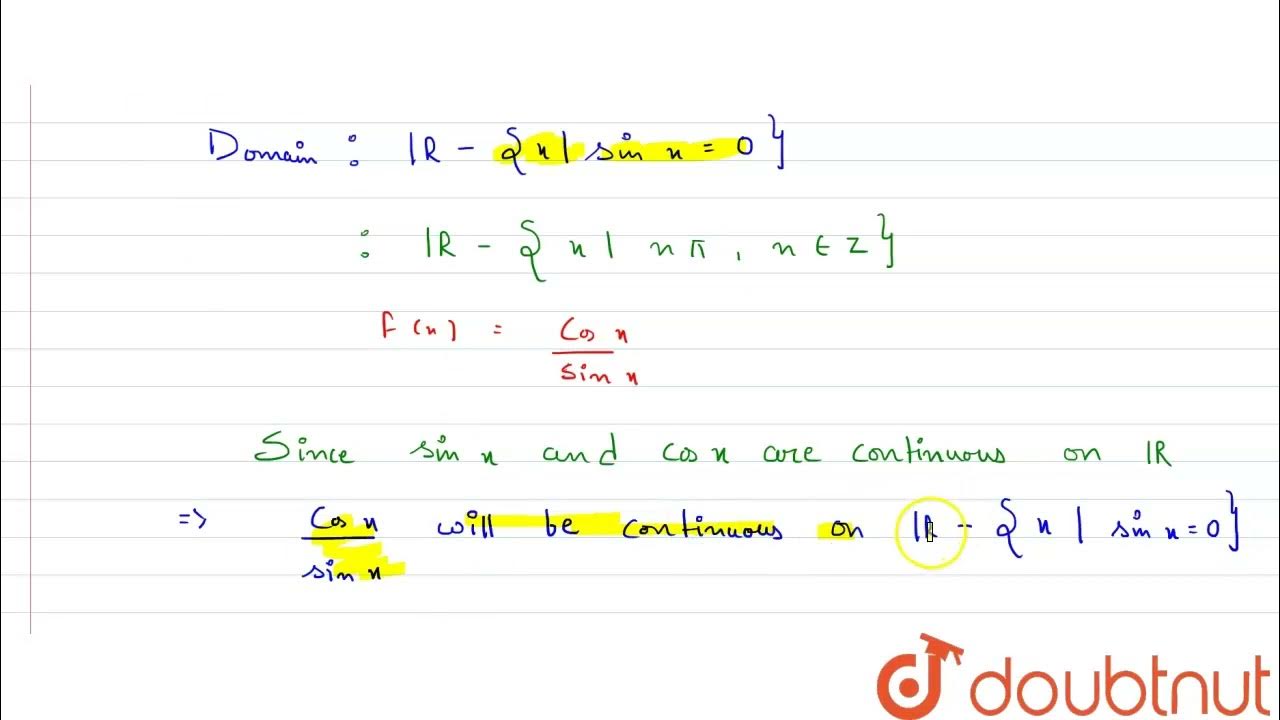 Domain : ℝ - { x | sin x = 0 }
: ℝ - { x | nπ , n ∈ Z }
f(x) = cos x / sin x
Since sin x and cos x are continuous on ℝ
=> cos x / sin x will be continuous on ℝ - { x | sin x = 0 }
doubtnut